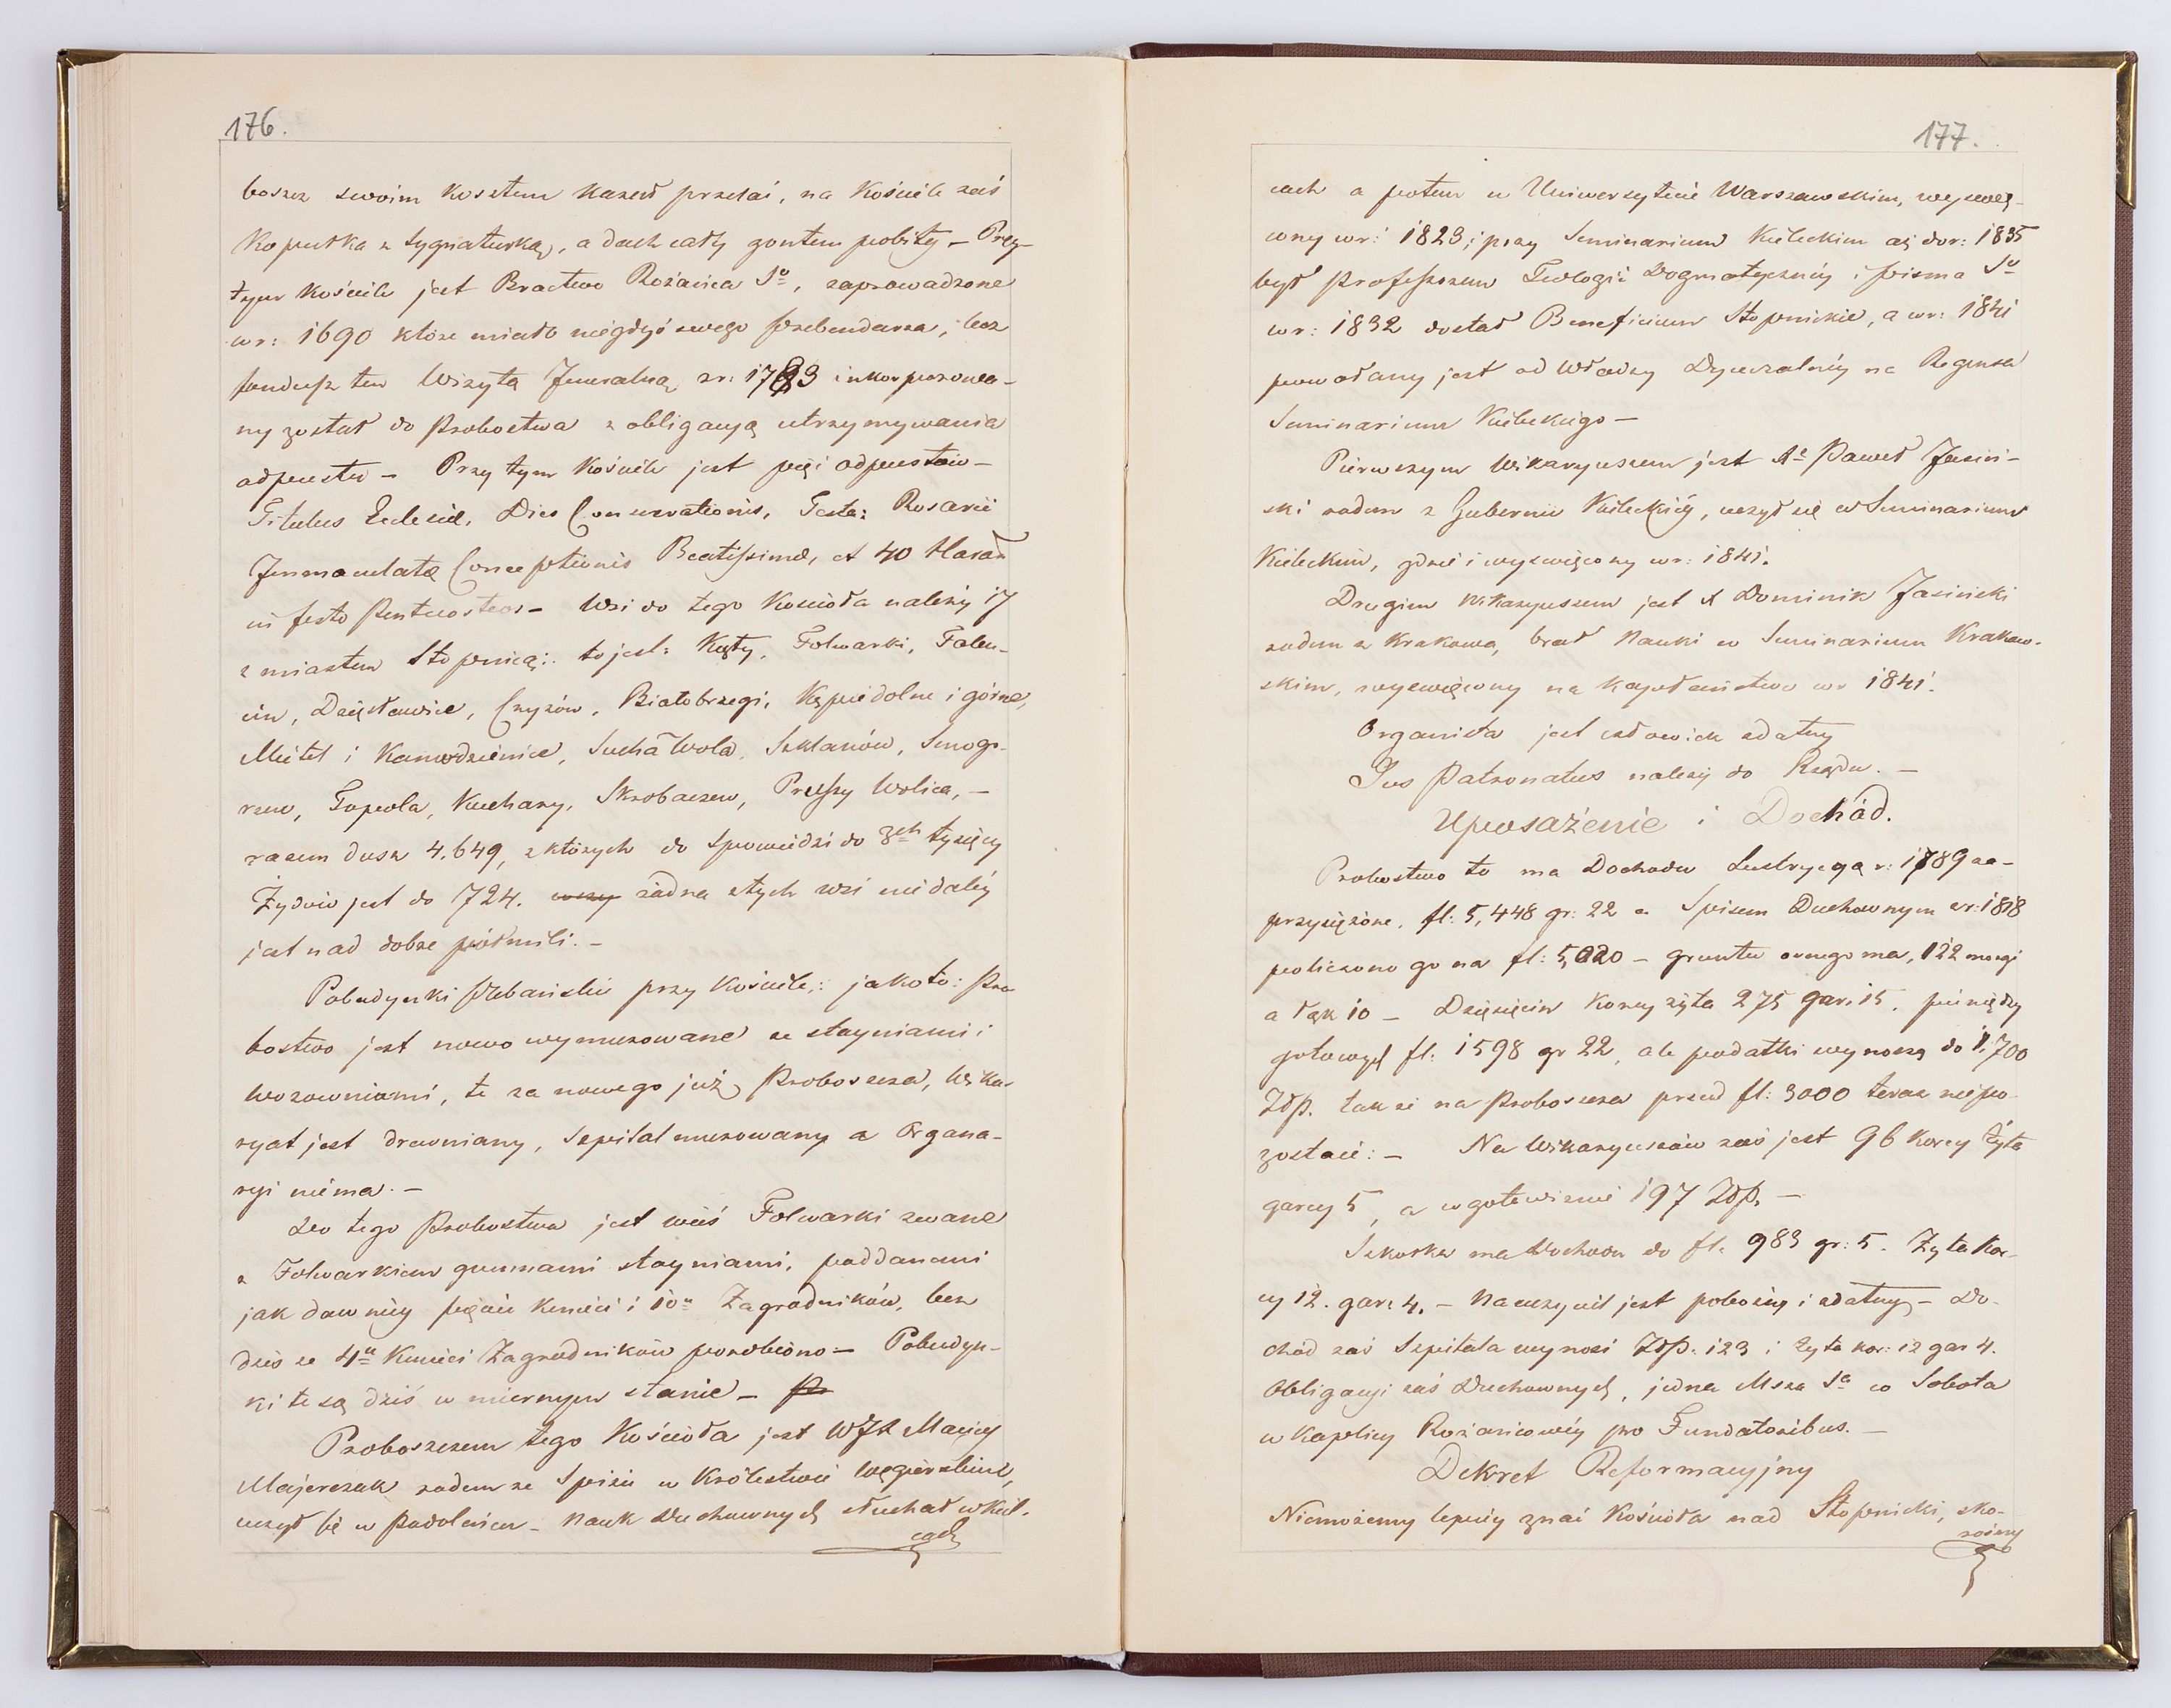 176.
boszcz swoim kosztem kazał przelać, na Kościele zaś
Kopułka z Sygnaturką, a dach cały gontem pobity – Przy
tym Kościele jest Bractwo Rożańca So, zaprowadzone
w r: 1690 które miało niegdyś swego Prebendarza, lecz
fundusz ten Wizytą Jeneralną z r: 1783 inkorporowa-
ny został do Probostwa z obligacyą utrzymywania
odpustu – Przy tym Kościele jest pięć odpustów –
Titulus Ecclesiæ, Dies Consecrationis, Festa: Rosarii
Immaculatæ Conceptionis Beatissimæ, et 40 Horar
in festo Pentecostes – Wsi do tego Kościoła należy 17
z miastem Stopnicą: to jest: Kąty, Folwarki, Falęc-
cin, Dziesławice, Czyżów, Białobrzegi, Kępie dolne i górne,
Mietel i Kanwdzienice, Sucha Wola, Szklanów, Smogo-
rzew, Topola, Kuchary, Skrobaczew, Prussy Wolica, –
razem dusz 4.649, z których do Spowiedzi do 3ch tysięcy
Żydów jest do 724. wszy żadna z tych wsi nie daléj
jest nad dobre półmili. –
Pobudynki Plebańskie przy Kościele: jako to: Pro
bostwo jest nowo wymurowane ze stayniami i
wozowniami, te za nowego już Proboszcza, Wika-
ryat jest drewniany, Szpital murowany a Organa-
ryi niéma. –
Do tego Probostwa jest wieś Folwarki zwane
z Folwarkiem gumnami stayniami, poddanemi
jak dawniéj pięciu Kmieci i 10u Zagrodników, lecz
dziś ze 4u Kmieci Zagrodników porobiono – Pobudyn-
ki te są dziś w miernym stanie – Pr
Proboszczem tego Kościoła jest WJX Maciej
Majerczak rodem ze Spiżu w Królestwie Węgierskiem,
uczył się w Podolińcu – Nauk Duchownych słuchał w Kiel-
cach
177.
cach a potem w Uniwersytecie Warszawskim, wyświę-
cony w r: 1823; przy Seminarium Kieleckim aż do r: 1835
był Professorem Teologii Dogmatycznéj i Pisma So
w r: 1832 dostał Beneficium Stopnickie, a w r: 1841
powołany jest od Władzy Dyecezalnéj na Regensa
Seminarium Kieleckiego –
Pierwszym Wikaryuszem jest Xe Paweł Jasiń-
ski rodem z Gubernii Kieleckiéj, uczył się w Seminarium
Kieleckim, gdzie i wyświęcony w r: 1841.
Drugim Wikaryuszem jest X Dominik Jasiński
rodem z Krakowa, brał Nauki w Seminarium Krakow-
skim, wyświęcony na Kapłaństwo w r 1841.
Organista jest człowiek zdatny
Jus Patronatus należy do Rządu. –
Uposażenie i Dochód.
Probostwo to ma Dochodu Lustracyą r: 1789 za-
przysiężone, fl: 5,448 gr: 22 a Spisem Duchownym z r: 1818
policzono go na fl: 5,020 – gruntu ornego ma, 122 morgi
a łąk 10 – Dziesięcin Korcy żyta 275 gar: 15, pieniędzy
gotowych fl: 1598 gr 22, ale podatki wynoszą do 1,700
Złp. tak że na Proboszcza przed fl: 3000 teraz niepo-
zostaie: – Na Wikaryuszów zaś jest 96 Korcy Żyta
garcy 5, a w gotowiznie 197 Złp. –
Szkółka ma Dochodu do fl. 983 gr: 5. Żyta Kor-
cy 12. gar: 4. – Nauczyciel jest pobożny i zdatny – Do-
chód zaś Szpitala wynosi Złp: 123 i Żyta kor: 12 gar 4.
Obligacyi zaś Duchownych, jedna Msza Sa co Sobota
w Kaplicy Rożańcowéj pro Fundatoribus. –
Dekret Reformacyjny
Niemożemy lepiéj znać Kościoła nad Stopnicki, sko-
rośmy